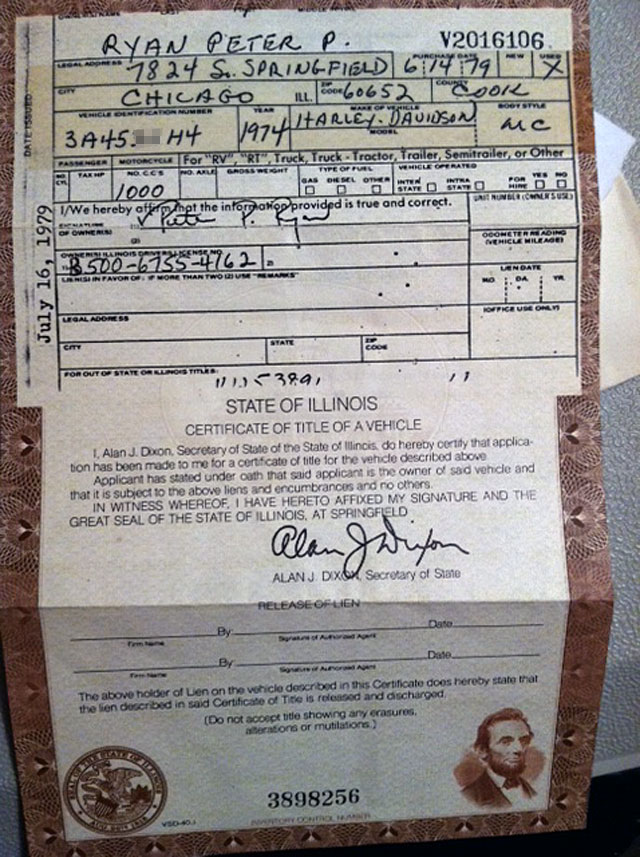 RYAN PETER P. V2016106
LEGAL ADDRESS PURCHASE DATE NEW USED
7824 S. SPRINGFIELD 6-14-79 X
CITY ZIP CODE COUNTY
CHICAGO ILL. 60652 COOK
VEHICLE IDENTIFICATION NUMBER YEAR MAKE OF VEHICLE BODY STYLE
3A45 H4 1974 HARLEY-DAVIDSON MC
MODEL
PASSENGER MOTORCYCLE For "RV", "RT", Truck, Truck - Tractor, Trailer, Semitrailer, or Other
NO. CYL. TAX HP NO. C.C'S NO. AXLE GROSS WEIGHT TYPE OF FUEL VEHICLE OPERATED
GAS DIESEL OTHER INTER STATE INTRA STATE FOR HIRE YES NO
1000
I/We hereby affirm that the information provided is true and correct. UNIT NUMBER (OWNER'S USE)
SIGNATURE OF OWNER(S) (1) Peter P. Ryan
(2)
ODOMETER READING (VEHICLE MILEAGE)
OWNER(S) ILLINOIS DRIVERS LICENSE NO.
500-6755-4762 2)
LIEN(S) IN FAVOR OF: IF MORE THAN TWO (2) USE "REMARKS"
LIEN DATE
MO. DA. YR.
LEGAL ADDRESS (OFFICE USE ONLY)
CITY STATE ZIP CODE
FOR OUT OF STATE OR ILLINOIS TITLES:
DATE ISSUED
July 16, 1979
STATE OF ILLINOIS
CERTIFICATE OF TITLE OF A VEHICLE
I, Alan J. Dixon, Secretary of State of the State of Illinois, do hereby certify that applica-
tion has been made to me for a certificate of title for the vehicle described above.
Applicant has stated under oath that said applicant is the owner of said vehicle and
that it is subject to the above liens and encumbrances and no others.
IN WITNESS WHEREOF, I HAVE HERETO AFFIXED MY SIGNATURE AND THE
GREAT SEAL OF THE STATE OF ILLINOIS, AT SPRINGFIELD
Alan J Dixon
ALAN J. DIXON, Secretary of State
RELEASE OF LIEN
By Date
Firm Name Signature of Authorized Agent
By Date
Firm Name Signature of Authorized Agent
The above holder of Lien on the vehicle described in this Certificate does hereby state that
the lien described in said Certificate of Title is released and discharged.
(Do not accept title showing any erasures,
alterations or mutilations.)
SEAL OF THE STATE OF ILLINOIS
AUG. 26TH 1818
VSD-40.1
3898256
INVENTORY CONTROL NUMBER